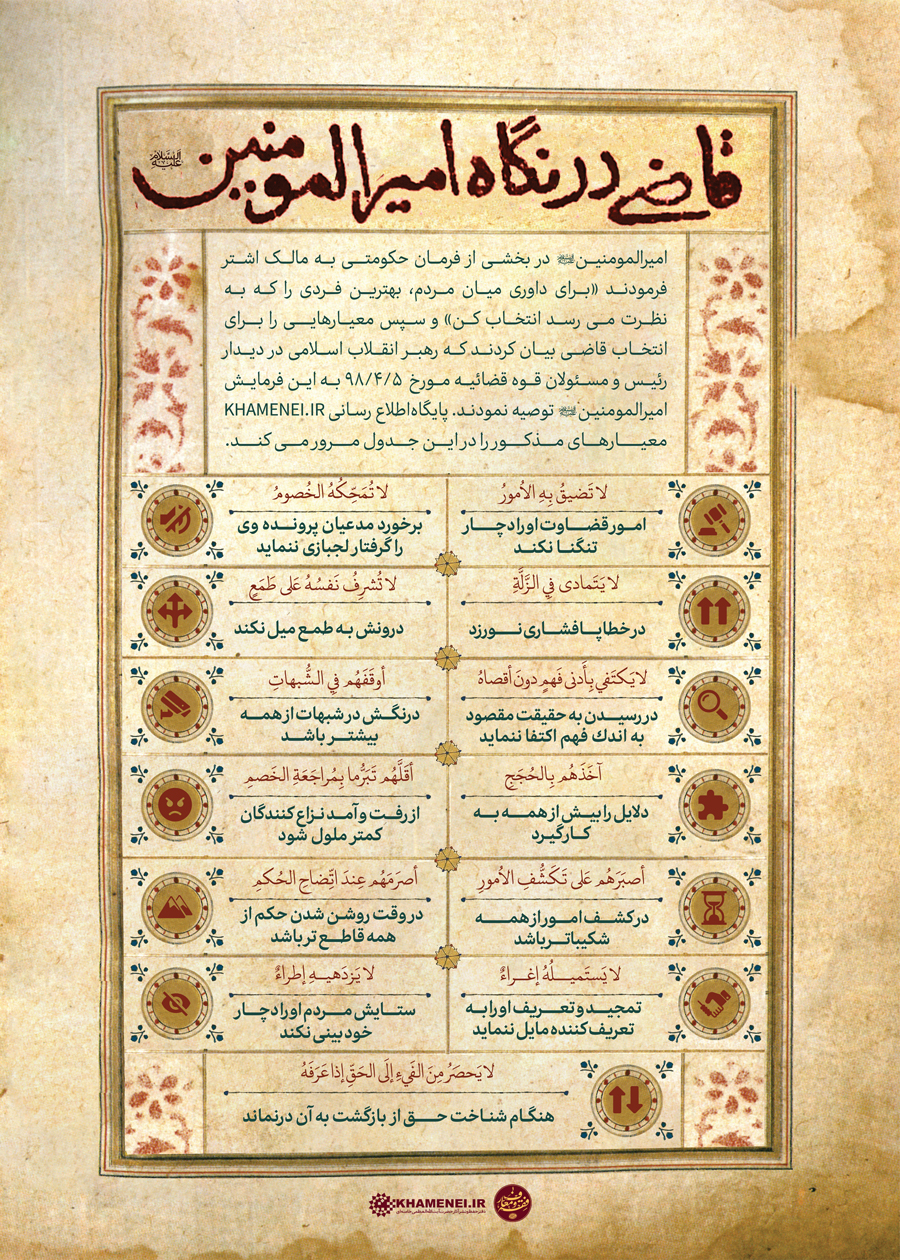 قاضی در نگاه امیرالمومنین علیه السلام
امیرالمومنین در بخشی از فرمان حکومتی به مالک اشتر
فرمودند «برای داوری میان مردم، بهترین فردی را که به
نظرت می رسد انتخاب کن» و سپس معیارهایی را برای
انتخاب قاضی بیان کردند که رهبر انقلاب اسلامی در دیدار
رئیس و مسئولان قوه قضائیه مورخ ۹۸/۴/۵ به این فرمایش
امیرالمومنین توصیه نمودند. پایگاه اطلاع رسانی KHAMENEI.IR
معیارهای مذکور را در این جدول مرور می کند.
لا تَضيقُ بِهِ الأمورُ
امور قضاوت او را دچار
تنگنا نکند
لا تُمَحِّكُهُ الخُصومُ
برخورد مدعیان پرونده وی
را گرفتار لجبازی ننماید
لا يَتَمادى فِي الزَّلَّةِ
در خطا پافشاری نورزد
لا تُشرِفُ نَفسُهُ عَلى طَمَعٍ
درونش به طمع میل نکند
لا يَكتَفي بِأَدنى فَهمٍ دونَ أقصاهُ
در رسیدن به حقیقت مقصود
به اندك فهم اکتفا ننماید
أوقَفَهُم فِي الشُّبهاتِ
درنگش در شبهات از همه
بیشتر باشد
آخَذَهُم بِالحُجَجِ
دلایل را بیش از همه به
کار گیرد
أقَلَّهُم تَبَرُّما بِمُراجَعَةِ الخَصمِ
از رفت و آمد نزاع کنندگان
کمتر ملول شود
أصبَرَهُم عَلى تَكَشُّفِ الأمورِ
در کشف امور از همه
شکیباتر باشد
أصرَمَهُم عِندَ اتِّضاحِ الحُكمِ
در وقت روشن شدن حکم از
همه قاطع تر باشد
لا يَستَميلُهُ إغراءٌ
تمجید و تعریف او را به
تعریف کننده مایل ننماید
لا يَزدَهيهِ إطراءٌ
ستایش مردم او را دچار
خودبینی نکند
لا يَحصَرُ مِنَ الفَيءِ إلَى الحَقِّ إذا عَرَفَهُ
هنگام شناخت حق از بازگشت به آن درنماند
KHAMENEI.IR